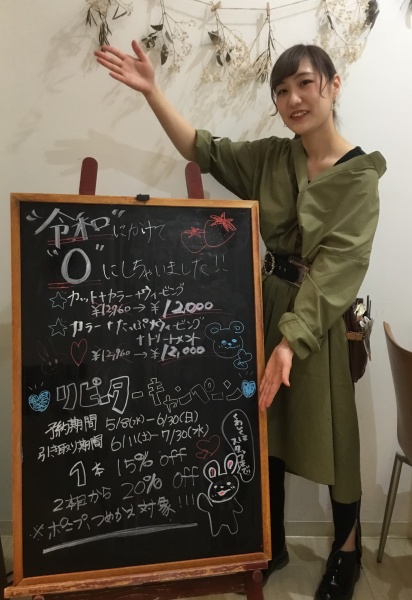 "令和"にかけて
"0"にしちゃいました!!
☆カット+カラー+ヴィービング
¥12,960→¥12,000
☆カラー+たっぷりヴィービング
+トリートメント
¥12,960→¥12,000
リピーターキャンペーン
予約期間 5/8(水)-6/30(日)
引き取り期間 6/11(土)-7/30(水)
1本 15% off
2本目から 20% off
※ポンプ、つめかえ対象!!!!